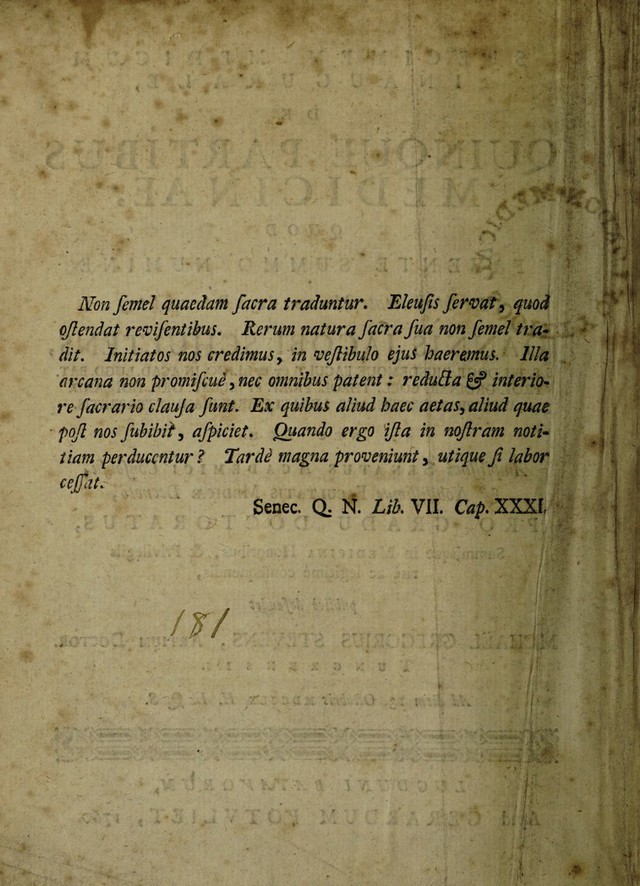 Non ſemel quaedam ſacra traduntur. Eleuſis ſervat, quod
oſtendat reviſentibus. Rerum natura ſacra ſua non ſemel tra-
dit. Initiatos nos credimus, in veſtibulo ejus haeremus. Illa
arcana non promiſcuè, nec omnibus patent: reducta & interio-
re ſacrario clauſa ſunt. Ex quibus aliud haec aetas, aliud quae
poſt nos ſubibit, aſpiciet. Quando ergo iſta in noſtram noti-
tiam perducentur? Tardè magna proveniunt, utique ſi labor
ceſſat.
Senec. Q. N. Lib. VII. Cap. XXXI.
181